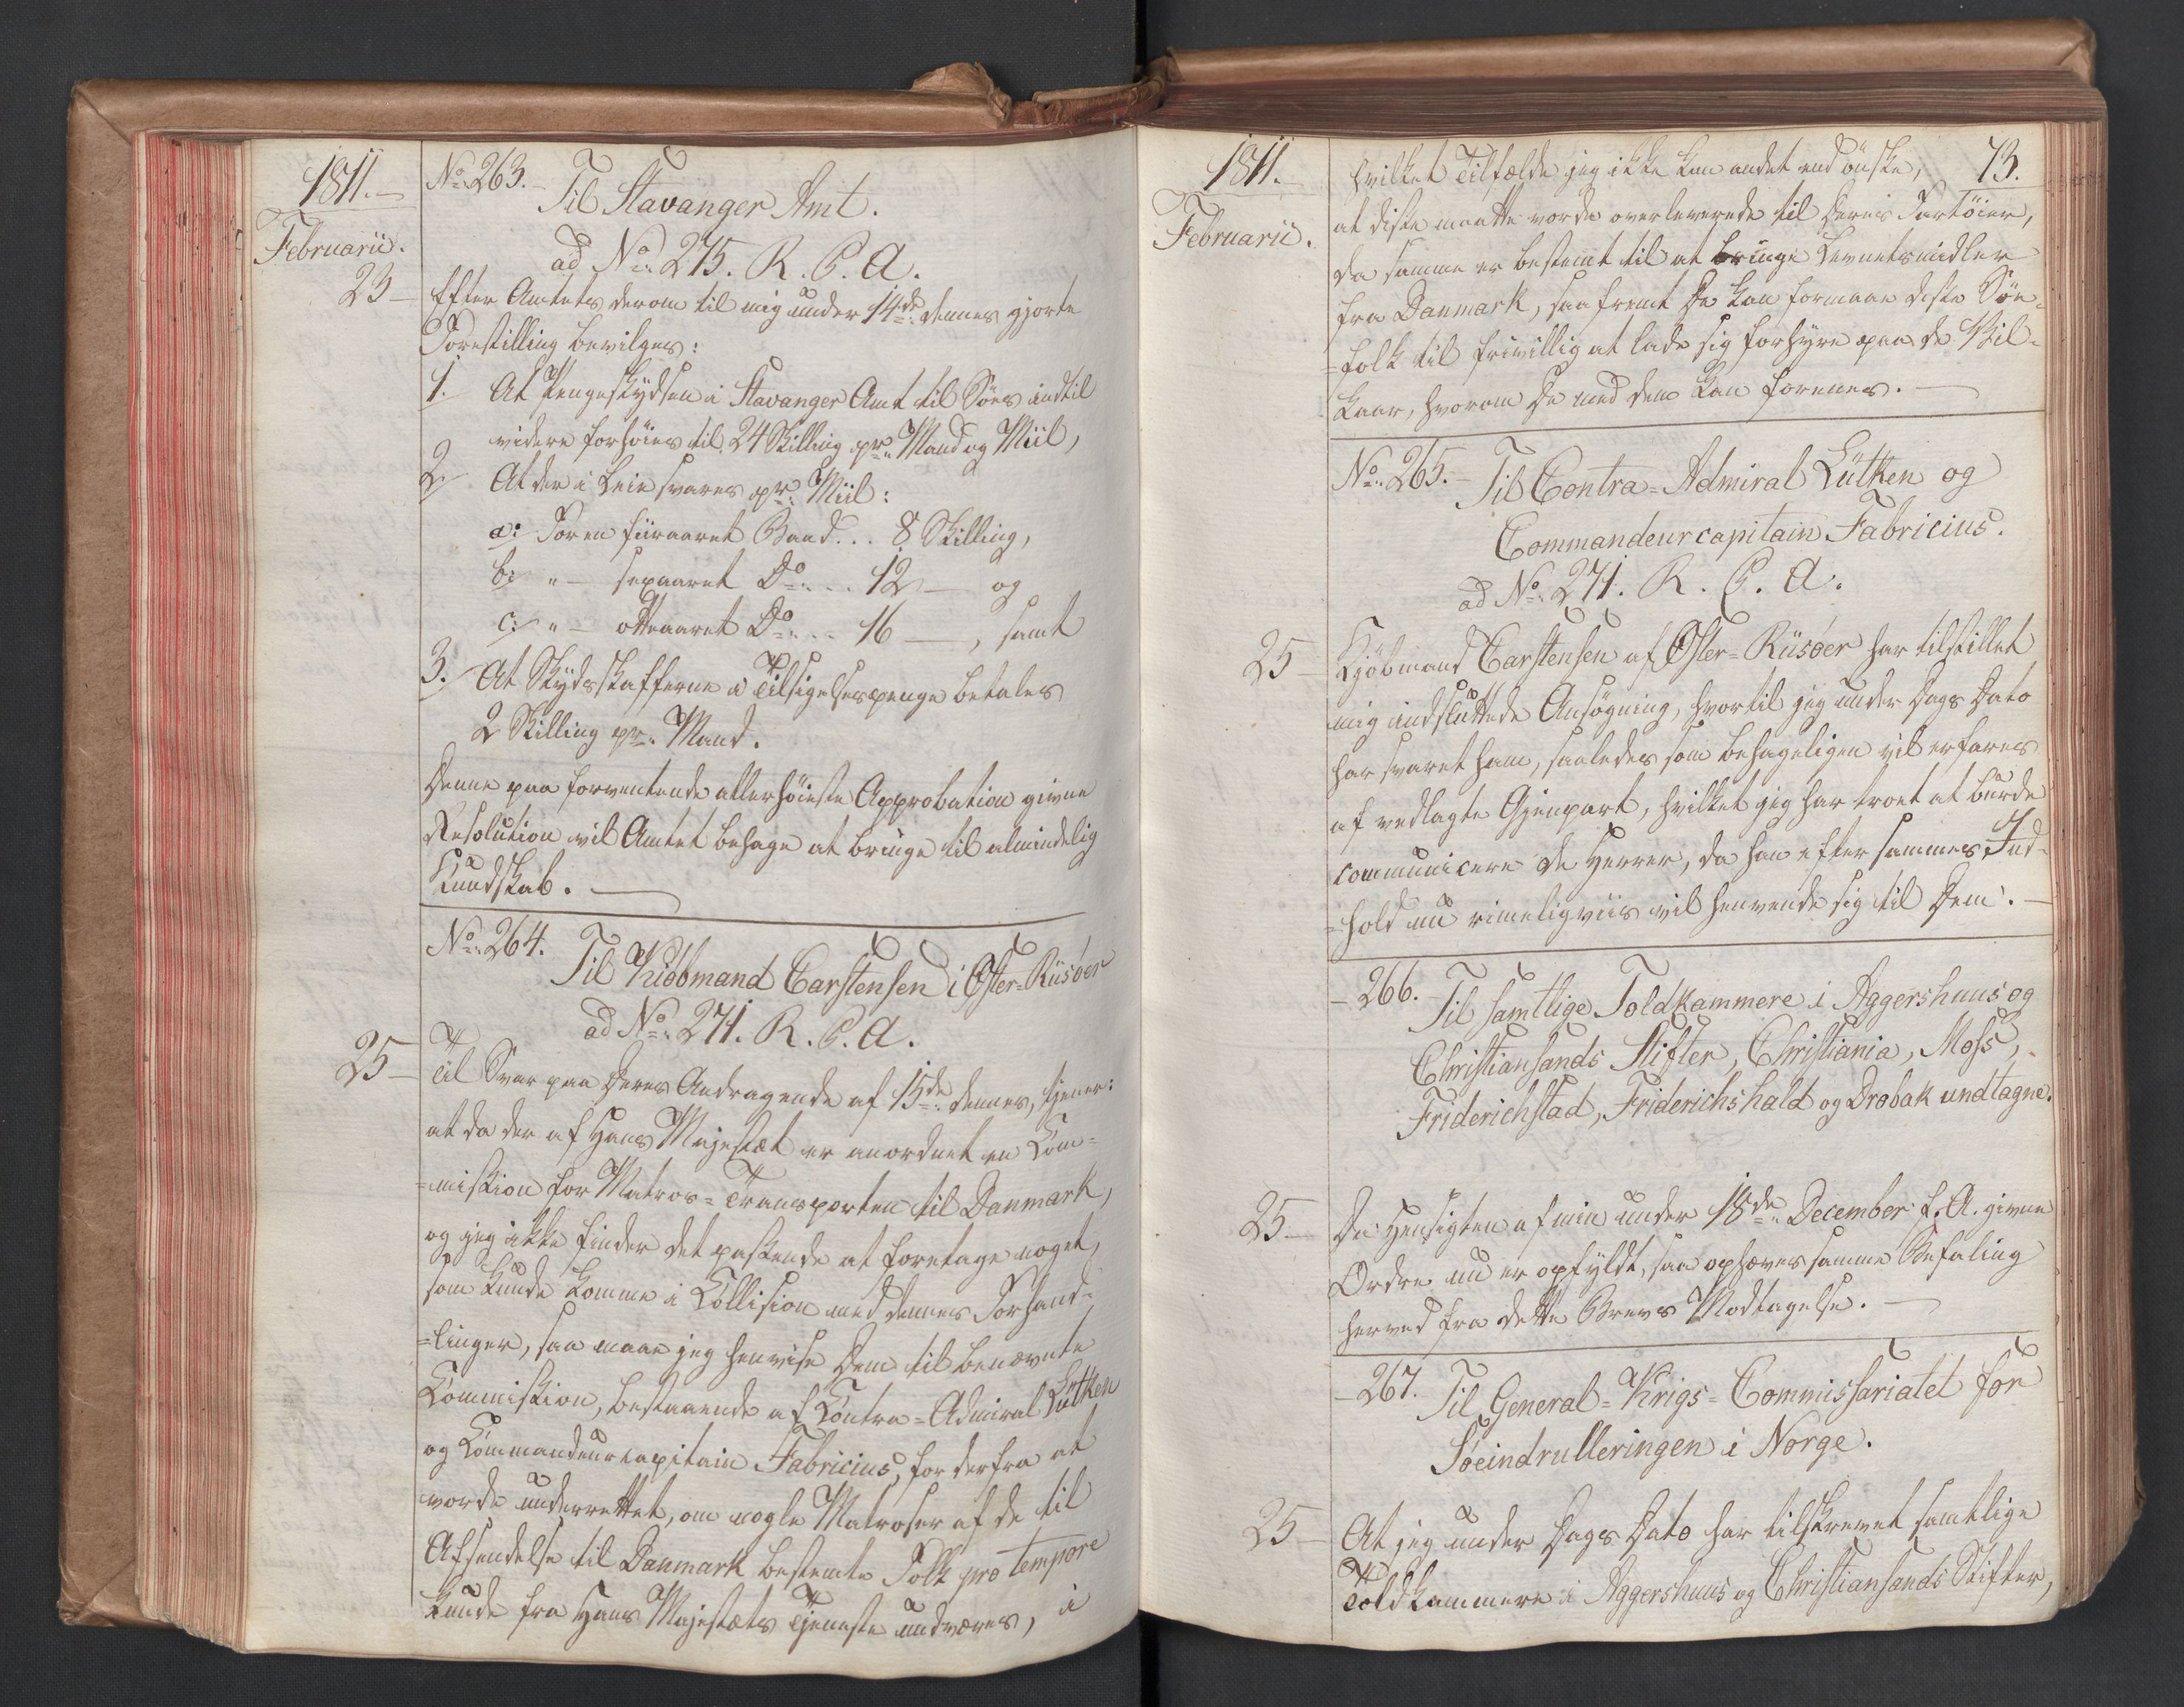 1811.
Februarii.
No. 263.
Til Stavanger Amt.
ad No. 275. R. C. A.
23 Efter Amtets derom til mig under 14de dennes gjorte
Forestilling bevilges:
1. At Pengeskydsen i Stavanger Amt til Söes indtil
videre forhöies til 24 Skilling pr. Mand og Miil,
2. At der i Leie svares pr. Miil:
a: For en fiiraaret Baad... 8 Skilling,
b: " — sexaaret Do.... 12 — og
c: " — otteaaret Do.... 16 —, samt
3. At Skydsskafferne i Tilsigelsespenge betales
2 Skilling pr. Mand.
Denne paa forventende allerhöieste Approbation givne
Resolution vil Amtet behage at bringe til almindelig
Kundskab. —
No. 264.
Til Kiöbmand Carstensen i Öster-Riisöer
ad No. 271. R. C. A.
25 Til Svar paa Deres Andragende af 15de dennes, tjener:
at da der af Hans Majestæt er anordnet en Com-
=mission for Matros-Transporten til Danmark,
og jeg ikke finder det passende at foretage noget,
som kunde komme i Collision med dennes Forhand-
=linger, saa maae jeg henvise Dem til benævnte
Commission, bestaaende af Contra-Admiral Lütken
og Commandeurcapitain Fabricius, for derfra at
vorde underrettet, om nogle Matroser af de til
Afsendelse til Danmark bestemte Folk pro tempore
kunde fra Hans Majestæts Tjeneste undværes, i
1811.
Februarii.
73.
hvilket Tilfælde jeg ikke kan andet end önske,
at disse maatte vorde overleverede til Deres Fartöier,
da samme er bestemt til at bringe Levnetsmidler
fra Danmark, saafremt De kan formaae disse Söe-
=folk til frivillig at lade sig forhyre paa de Vil-
kaar, hvorom De med dem kan forenes. —
No. 265.
Til Contra-Admiral Lütken og
Commandeurcapitain Fabricius.
ad No. 271. R. C. A.
25 Kjöbmand Carstensen af Öster-Riisöer har tilstillet
mig indsluttede Ansögning, hvortil jeg under Dags Dato
har svaret ham, saaledes som behageligen vil erfares
af vedlagte Gjenpart, hvilket jeg har troet at burde
communicere de Herrer, da han efter sammes Ind-
=hold nu rimeligviis vil henvende sig til Dem. —
— 266.
Til samtlige Toldkammere i Aggershuus og
Christiansands Stifter, Christiania, Moss,
Friderichstad, Friderichshald og Dröbak undtagne.
25 Da Hensigten af min under 18de December f. A. givne
Ordre nu er opfyldt, saa ophæves samme Befaling
herved fra dette Brevs Modtagelse. —
— 267.
Til General-Krigs-Commissariatet for
Söeindrulleringen i Norge.
25 At jeg under Dags Dato har tilskrevet samtlige
Toldkammere i Aggershuus og Christiansands Stifter,